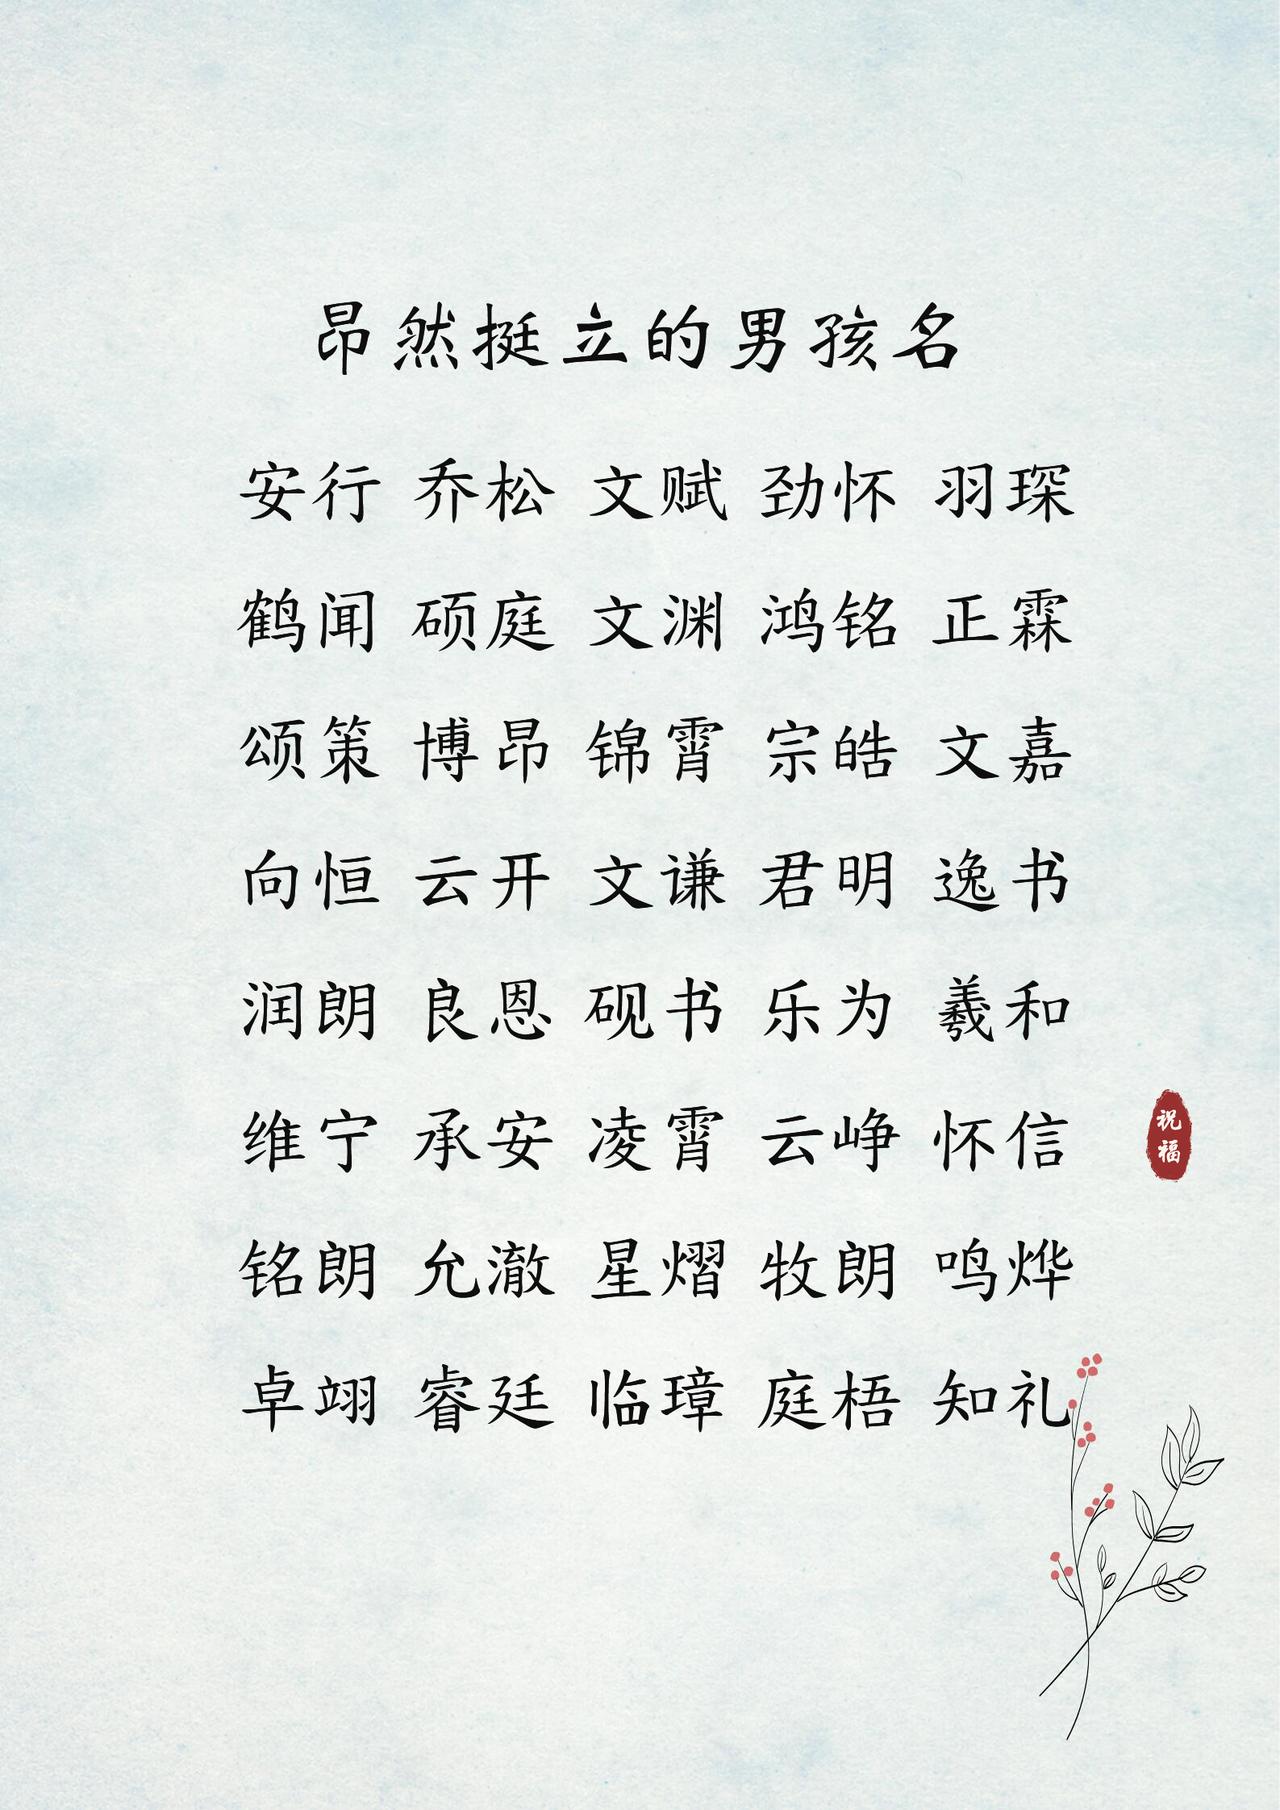 昂然挺立的男孩名
安行 乔松 文赋 劲怀 羽琛
鹤闻 硕庭 文渊 鸿铭 正霖
颂策 博昂 锦霄 宗皓 文嘉
向恒 云开 文谦 君明 逸书
润朗 良恩 砚书 乐为 羲和
维宁 承安 凌霄 云峥 怀信
祝福
铭朗 允澈 星熠 牧朗 鸣烨
卓翊 睿廷 临璋 庭梧 知礼